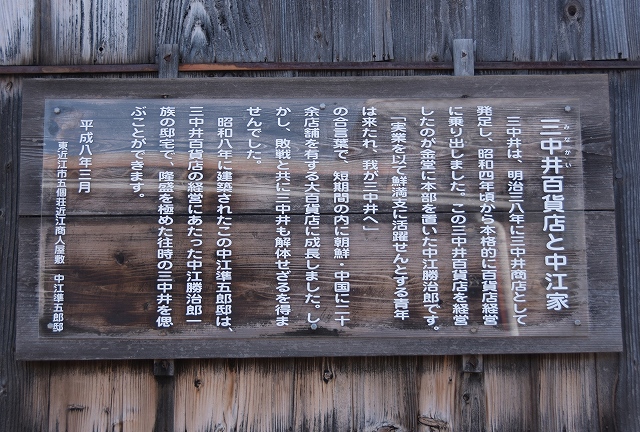 みなかい
三中井百貨店と中江家
三中井は、明治三八年に三中井商店として
発足し、昭和四年頃から本格的に百貨店経営
に乗り出しました。この三中井百貨店を経営
したのが金堂に本部を置いた中江勝治郎です。
「実業を以て鮮満支に活躍せんとする青年
は来たれ、我が三中井へ」
の合言葉で、短期間の内に朝鮮・中国に二十
余店舗を有する大百貨店に成長しました。し
かし、敗戦と共に三中井も解体せざるを得ま
せんでした。
昭和八年に建築されたこの中江準五郎邸は、
三中井百貨店の経営にあたった中江勝治郎一
族の邸宅で、隆盛を極めた往時の三中井を偲
ぶことができます。
平成八年三月
東近江市五個荘近江商人屋敷　中江準五郎邸